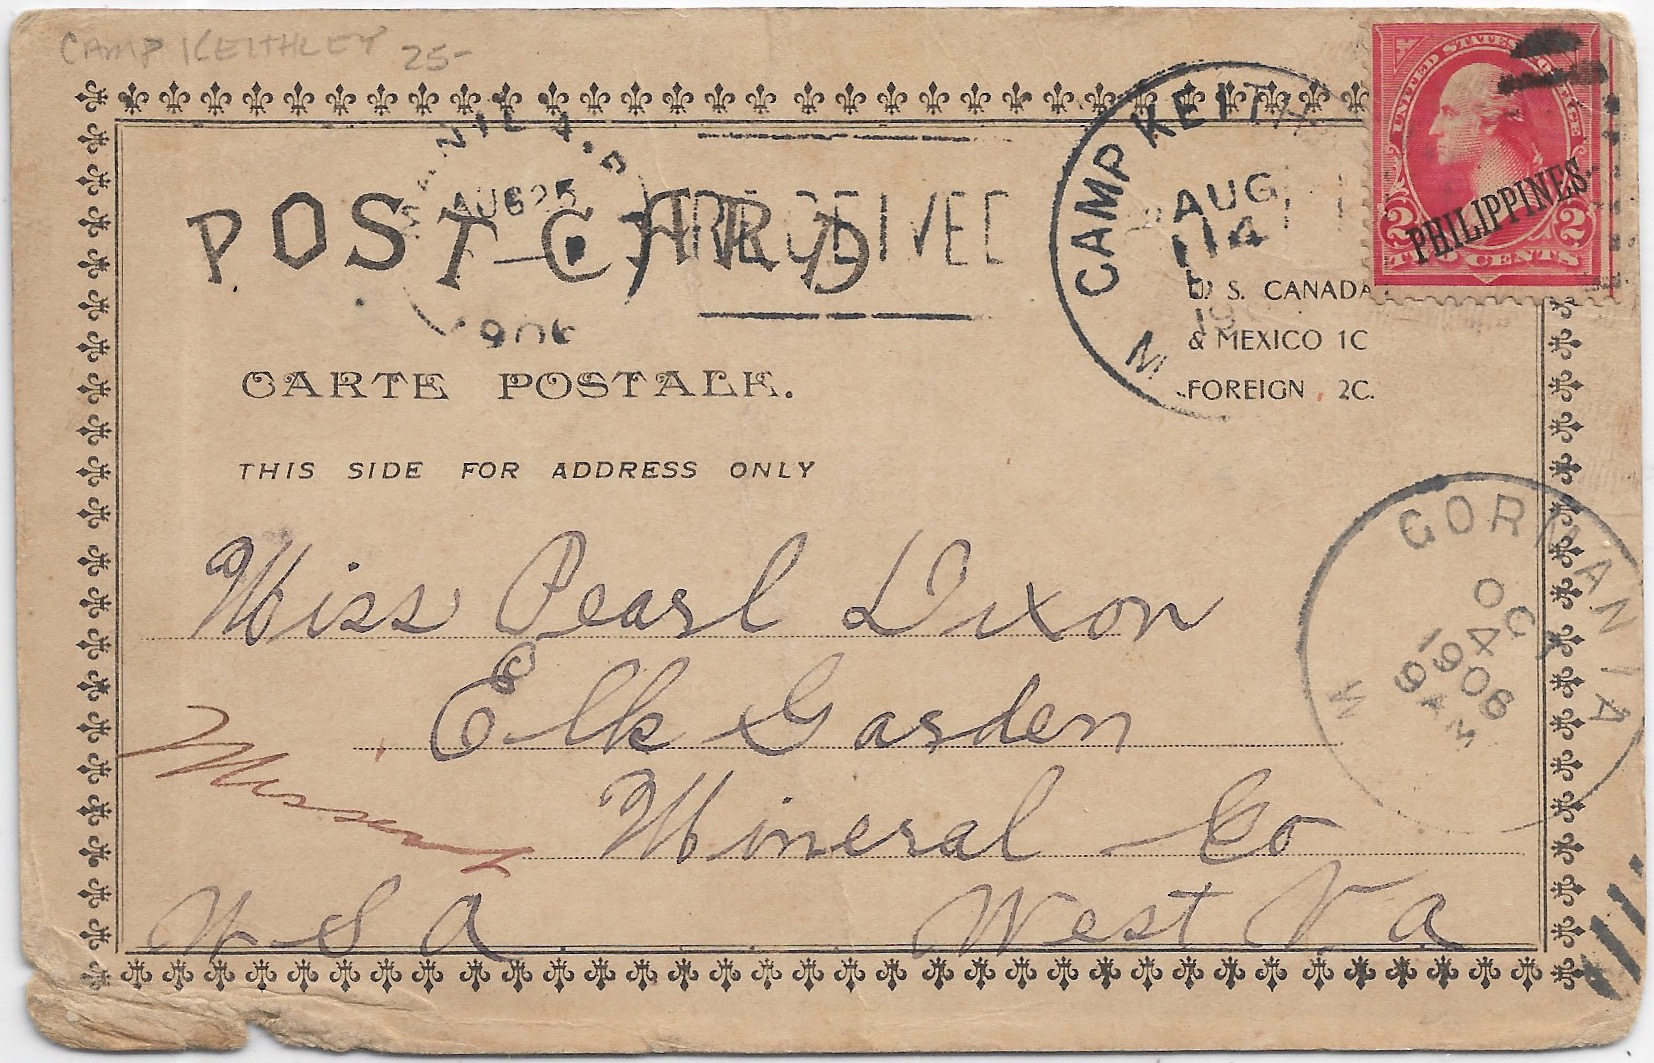 CAMP KEITHLEY 25-
UNITED STATES
PHILIPPINES
2 2
TWO CENTS
CAMP KEITH
AUG
14
M
MANILA, P.
AUG 25
RECEIVED
POST CARD
U. S. CANADA
& MEXICO 1C
FOREIGN 2C.
CARTE POSTALE.
THIS SIDE FOR ADDRESS ONLY
GORMANIA
OCT
4
1906
9 AM
W
Miss Pearl Dixon
Elk Garden
Missent
Mineral Co
U S A West Va